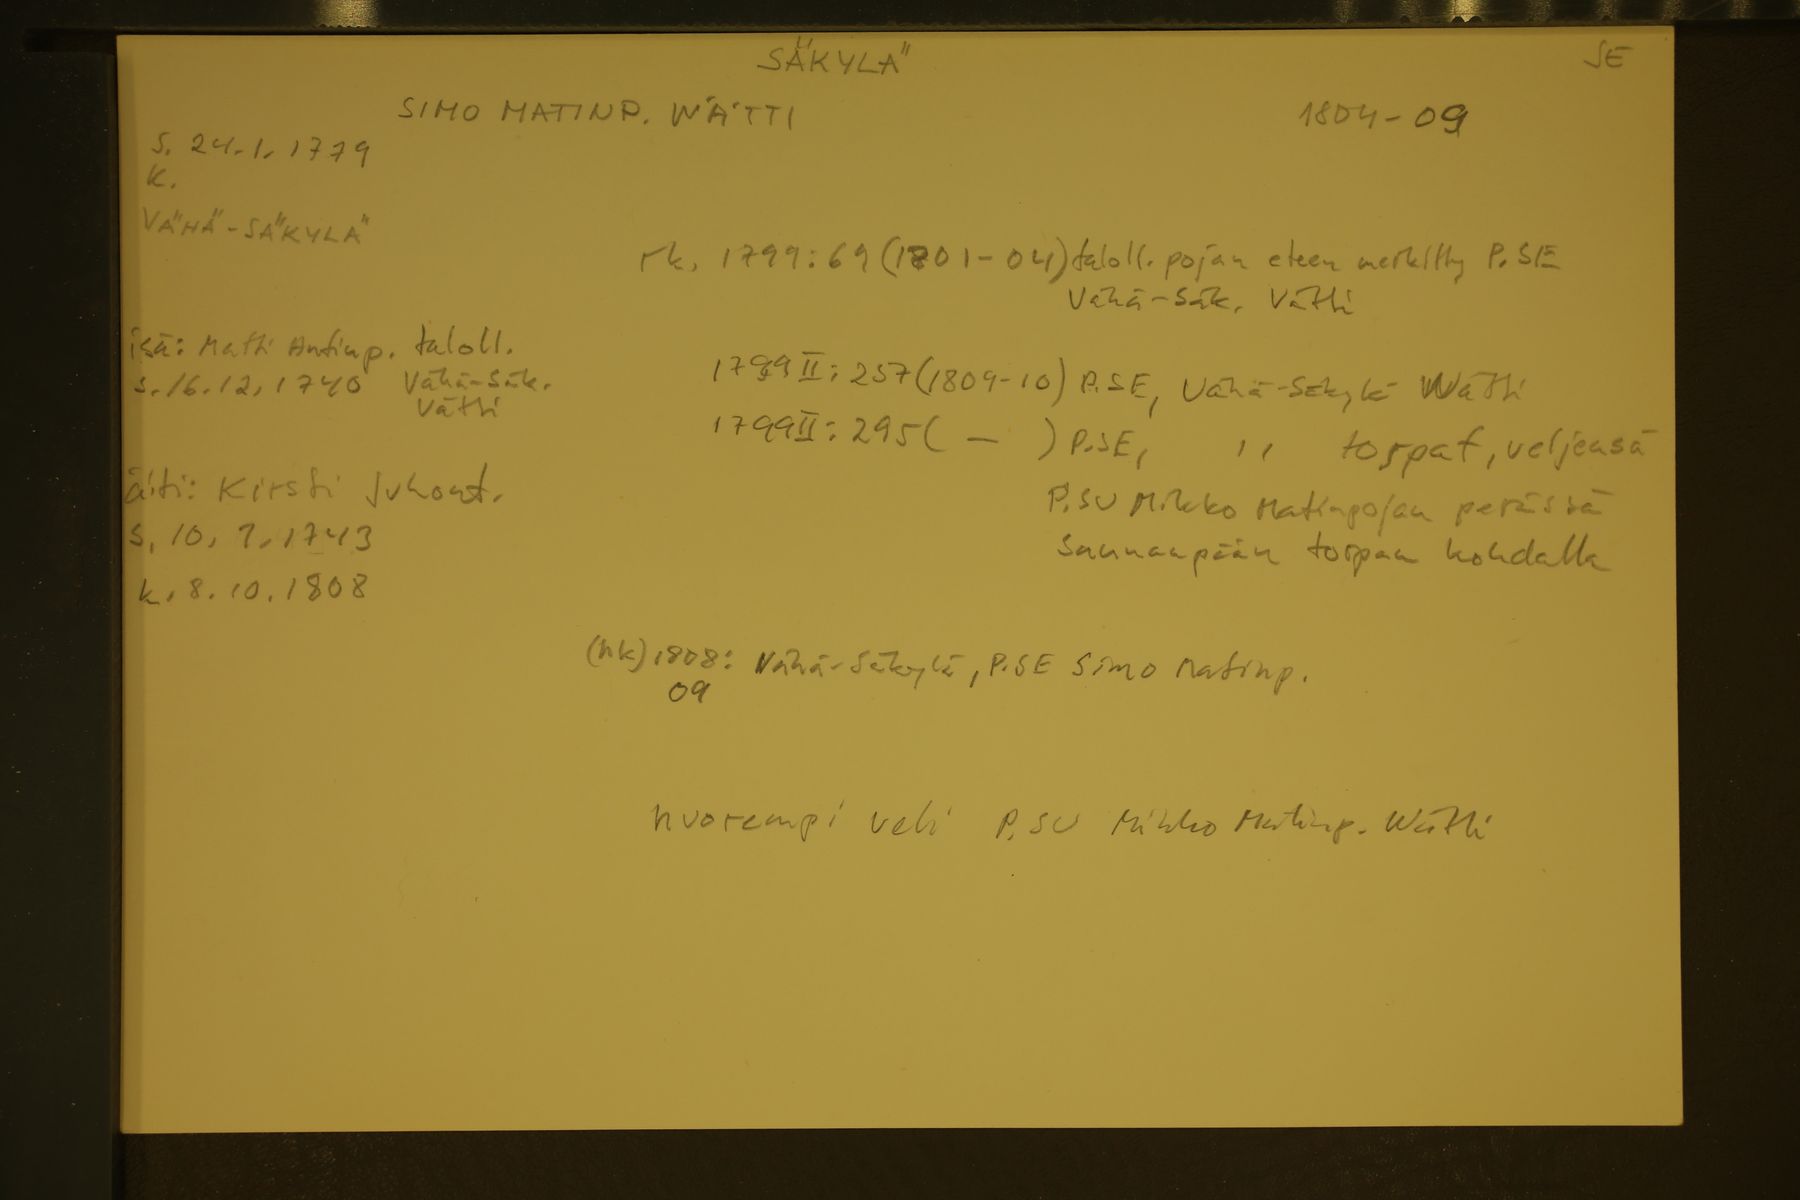 SÄKYLÄ
SE
SIMO MATINP. WÄTTI
1804-09
s. 24.1.1779
k.
VÄHÄ-SÄKYLÄ
rk. 1799:69 (1801-04) taloll. pojan eteen merkitty P.SE
Vähä-Säk. Vätti
isä: Matti Antinp. taloll.
s. 16.12.1740 Vähä-Säk.
Vätti
1799 II: 257 (1809-10) P.SE, Vähä-Säkylä Wätti
1799 II: 295 ( — ) P.SE, ,, torpat, veljensä
P.SU Mikko Matinpojan perässä
Saunanpään torpan kohdalla
äiti: Kirsti Juhont.
s. 10.7.1743
k. 8.10.1808
(hk) 1808: Vähä-Säkylä, P.SE Simo Matinp.
09
nuorempi veli P.SU Mikko Matinp. Wätti